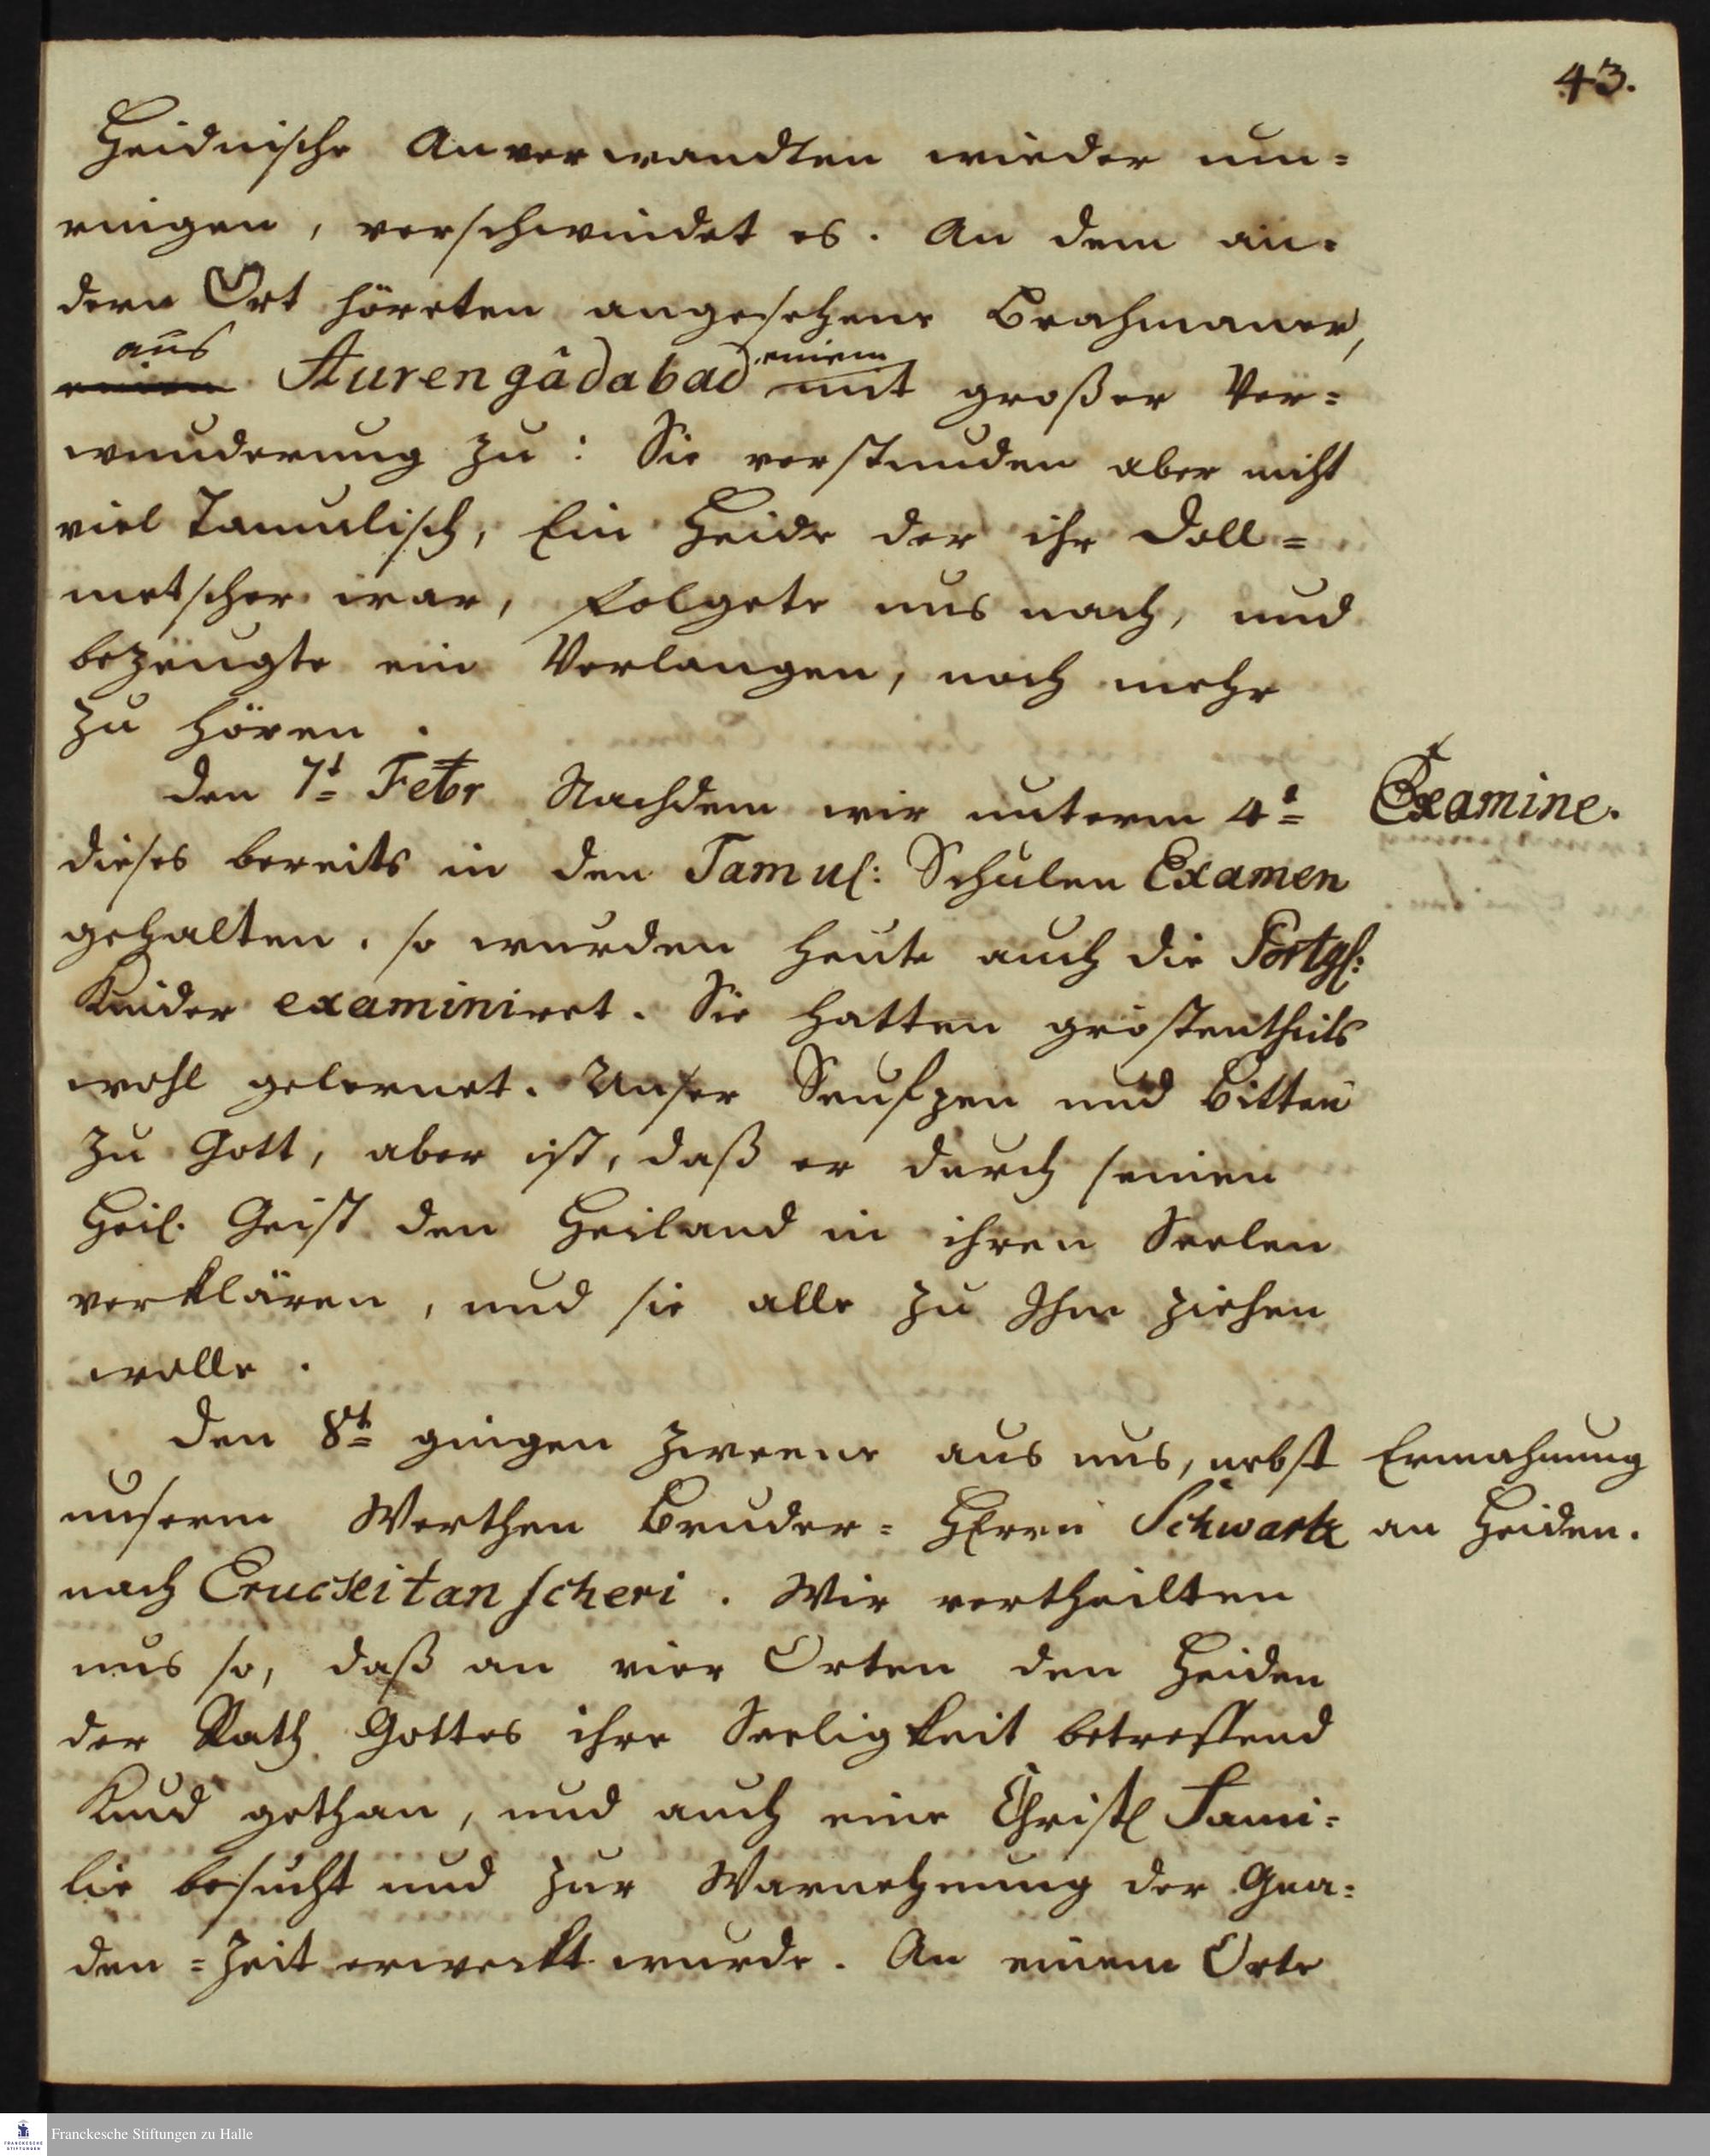 43.
Heidnische Anverwandten wieder um=
ringen, verschwindet es. An dem an=
dern Ort höreten angesehene Brahmaner,
aus Aurengâdabad einem mit großer Ver=
wunderung zu: Sie verstunden aber nicht
viel Tamulisch, Ein Heide der ihr Doll=
metscher war, folgete uns nach, und
bezeugte ein Verlangen, noch mehr
zu hören.
den 7t Febr Nachdem wir unterm 4t
Examine.
dieses bereits in den Tamul: Schulen Examen
gehalten, so wurden heute auch die Portgl:
Kinder examiniret. Sie hatten gröstentheils
wohl gelernet. Unser Seufzen und Bitten
zu Gott, aber ist, daß er durch seinen
Heil. Geist den Heiland in ihren Seelen
verklären, und sie alle zu Ihm ziehen
wolle.
den 8t gingen zweene aus uns, nebst
Ermahnung
unserm Werthen Bruder= HErrn Schwartz
an Heiden.
nach Eruckeitanscheri. Wir vertheilten
uns so, daß an vier Orten den Heiden
der Rath Gottes ihre Seeligkeit betreffend
Kund gethan, und auch eine Christl Fami=
lie besucht und zur Warnehmung der Gna=
den=Zeit erweckt wurde. An einem Orte
Franckesche Stiftungen zu Halle